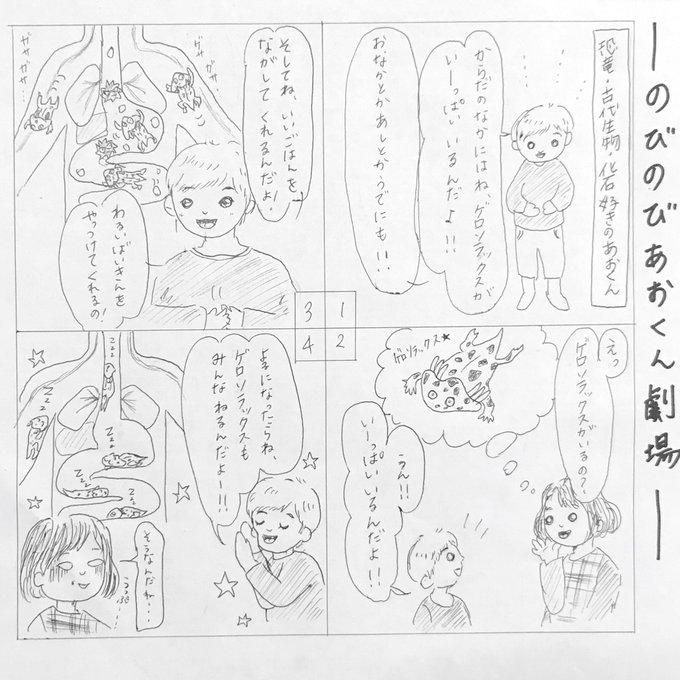 ―のびのびあおくん劇場―
恐竜・古代生物・化石好きのあおくん
からだのなかにはね、ゲロソラックスが
いーっぱいいるんだよ!!
おなかとかあしとかうでにも!!
1
2
3
4
えっ
ゲロソラックスがいるの?
ゲロソラックス★
うん!!
いーっぱいいるんだよ!!
そしてね、いいごはんを
ながしてくれるんだよ!
わるいばいきんを
やっつけてくれるの!
ガサガサ…
ガサガサ…
よるになったらね、
ゲロソラックスも
みんなねるんだよー!!
そうなんだね…
うっぷ…
zzz
zzz
zzz
zzz
zzz
zzz